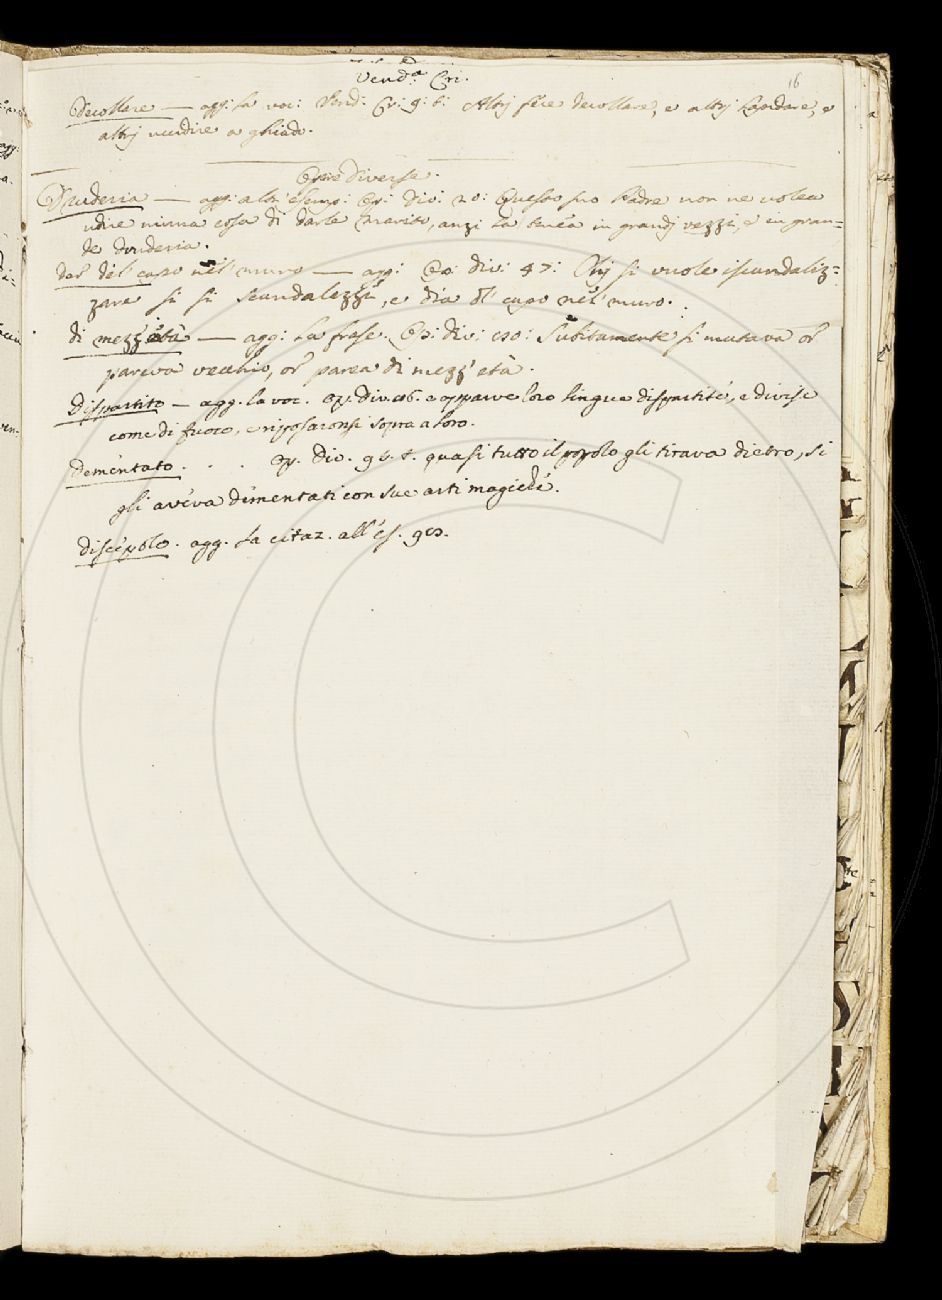 Vend.ª Cri.
16
Decollare — agg: la voc: Vend: Cr: 9: 6: Altrj fece decollare, e altrj lapidare, e
altrj uccidire a ghiado.
Opere diverse.
Druderia — agg: altri esemp: Op: div: 20: Questo suo Padre non ne volea
udire niuna cosa di darle marito, anzi la tenea in grandj vezzi, e in gran-
de druderia.
dar del capo nel muro — agg: Op: div: 47: Chj si vuole iscandaliz=
zare si si scandalezzi, e dia dl capo nel muro.
di mezz età — agg: La frase. Op: div: Subitamente si mutava or
pareva vecchio, or parea di mezz' età.
Dispartito — agg. la voc. op. div. e apparve loro lingue dispartite, e divise
come di fuoco, e riposaronsi sopra a loro.
Dementato . . . op. div. quasi tutto il popolo gli tirava dietro, si
gli aveva dementati con sue arti magiche.
Discepolo. agg. La citaz. all' es.